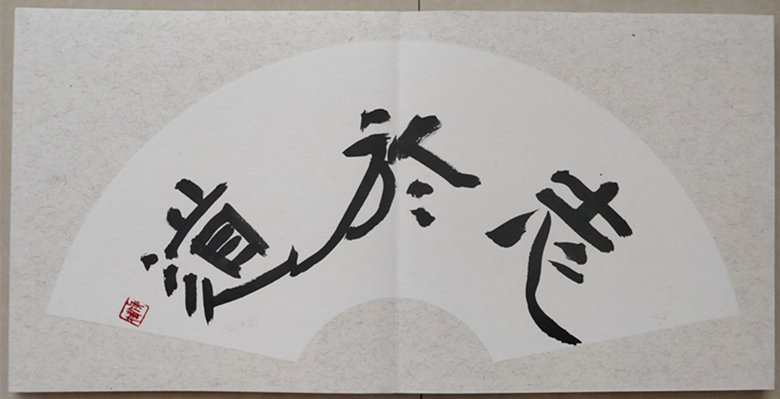 志於道